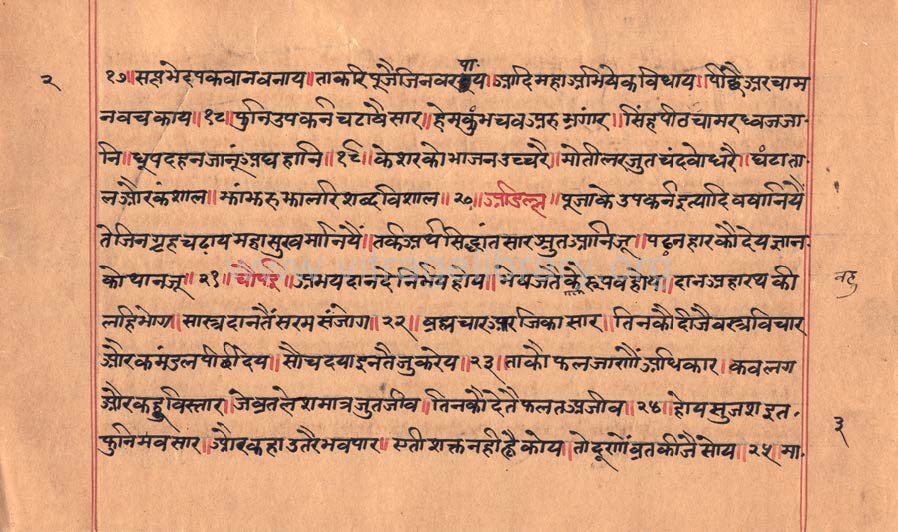 २
१७॥ सप्तभेद पकवान वनाय। ताकरि पूजै जिनवरपाय॥ आदि महा अभिषेक विधाय। पीछै अरचा म
न वच काय॥ १८॥ फुनि उपकर्न चढावै सार॥ हेमकुंभ चव अरु भ्रंगार॥ सिंहपीठ चामर ध्वज जा
नि॥ धूपदहन जानूं अघहानि॥ १९॥ केशर को भाजन उच्चरै॥ मोती लर जुत चंदवो धरै॥ घंटा ता
ल और कंशाल॥ झांझ रु झालरि शब्द विशाल॥ २०॥ अडिल्ल॥ पूजा के उपकर्न इत्यादि वषानियैं
ते जिन गृह चढाय महासुख मानियैं॥ तर्क अर्थ सिद्धांतसार श्रुत आनिजू॥ पढनहार कौ देय ज्ञान
को थानजू॥ २१॥ चौपई॥ अभयदान दे निर्भय होय॥ भय जत कै रूप व होय॥ दान अहार थकी
वहु
लहि भोग॥ सास्त्र दान तैं सरम संजोग॥ २२॥ व्रह्मचार अरजिका सार॥ तिन कौ दीजै वस्त्र विचार
और कमंडल पीछी देय॥ सौच दया इन तै जु करेय॥ २३॥ ता कौ फल जाणौं अधिकार॥ कव लग
और कहु विस्तार॥ जे व्रत लेशमात्र जुत जीव॥ तिन कौ दे तै फल त अजीव॥ २४॥ होय सुजश इत
३
फुनि भव सार॥ और कहा उतरै भवपार॥ एती शक्त नही ह्वै कोय॥ तो दूणौं व्रत कीजै सोय॥ २५॥ मा